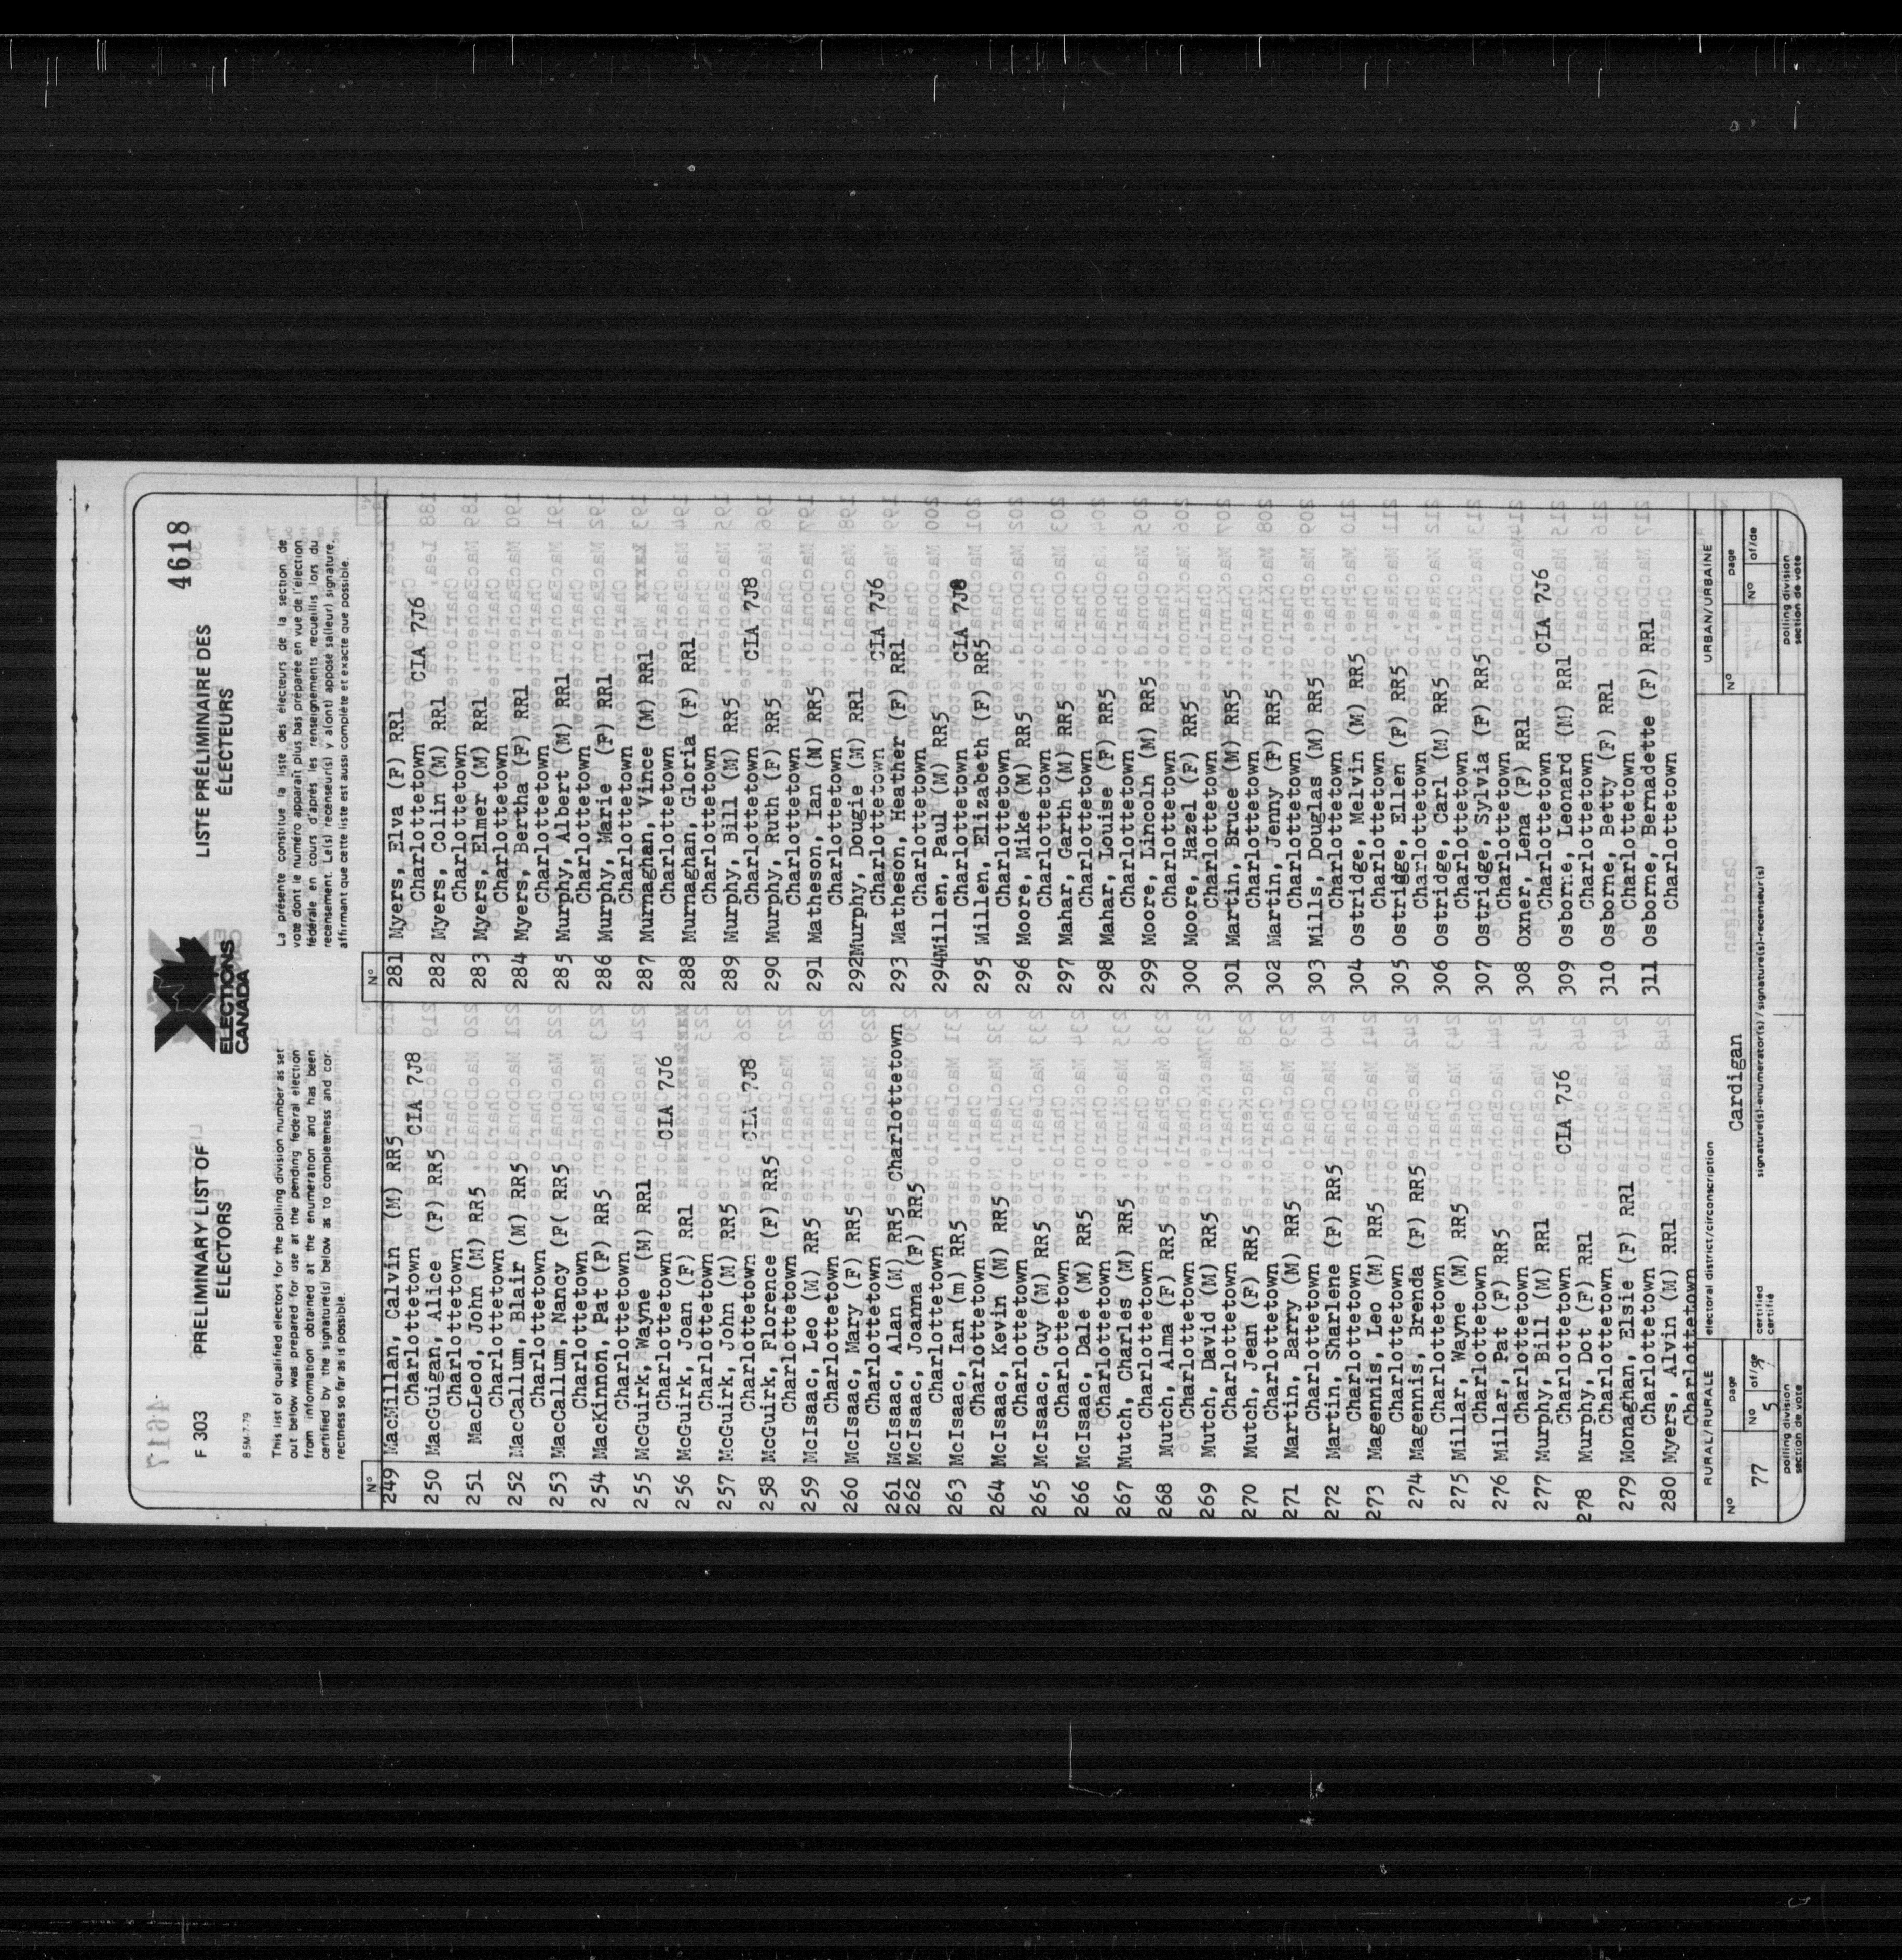 4618
F 303
85M-7-79
PRELIMINARY LIST OF
ELECTORS
ELECTIONS
CANADA
LISTE PRÉLIMINAIRE DES
ÉLECTEURS
This list of qualified electors for the polling division number as set
out below was prepared for use at the pending federal election
from information obtained at the enumeration and has been
certified by the signature(s) below as to completeness and cor-
rectness so far as is possible.
La présente constitue la liste des électeurs de la section de
vote dont le numéro apparaît plus bas préparée en vue de l'élection
fédérale en cours d'après les renseignements recueillis lors du
recensement. Le(s) recenseur(s) y a(ont) apposé sa(leur) signature,
affirmant que cette liste est aussi complète et exacte que possible.
Nº
249 MacMillan, Calvin (M) RR5
Charlottetown CIA 7J8
250 MacGuigan, Alice (F) RR5
Charlottetown
251 MacLeod, John (M) RR5
Charlottetown
252 MacCallum, Blair (M) RR5
Charlottetown
253 MacCallum, Nancy (F( RR5
Charlottetown
254 MacKinnon, Pat (F) RR5
Charlottetown
255 McGuirk, Wayne (M) RR1
Charlottetown CIA 7J6
256 McGuirk, Joan (F) RR1
Charlottetown
257 McGuirk, John (M) RR5
Charlottetown CIA 7J8
258 McGuirk, Florence (F) RR5
Charlottetown
259 McIsaac, Leo (M) RR5
Charlottetown
260 McIsaac, Mary (F) RR5
Charlottetown
261 McIsaac, Alan (M) RR5 Charlottetown
262 McIsaac, Joanna (F) RR5
Charlottetown
263 McIsaac, Ian (m) RR5
Charlottetown
264 McIsaac, Kevin (M) RR5
Charlottetown
265 McIsaac, Guy (M) RR5
Charlottetown
266 McIsaac, Dale (M) RR5
Charlottetown
267 Mutch, Charles (M) RR5
Charlottetown
268 Mutch, Alma (F) RR5
Charlottetown
269 Mutch, David (M) RR5
Charlottetown
270 Mutch, Jean (F) RR5
Charlottetown
271 Martin, Barry (M) RR5
Charlottetown
272 Martin, Sharlene (F) RR5
Charlottetown
273 Magennis, Leo (M) RR5
Charlottetown
274 Magennis, Brenda (F) RR5
Charlottetown
275 Millar, Wayne (M) RR5
Charlottetown
276 Millar, Pat (F) RR5
Charlottetown
277 Murphy, Bill (M) RR1
Charlottetown CIA 7J6
278 Murphy, Dot (F) RR1
Charlottetown
279 Monaghan, Elsie (F) RR1
Charlottetown
280 Myers, Alvin (M) RR1
Charlottetown
Nº
281 Myers, Elva (F) RR1
Charlottetown CIA 7J6
282 Myers, Colin (M) RR1
Charlottetown
283 Myers, Elmer (M) RR1
Charlottetown
284 Myers, Bertha (F) RR1
Charlottetown
285 Murphy, Albert (M) RR1
Charlottetown
286 Murphy, Marie (F) RR1
Charlottetown
287 Murnaghan, Vince (M) RR1
Charlottetown
288 Murnaghan, Gloria (F) RR1
Charlottetown
289 Murphy, Bill (M) RR5
Charlottetown CIA 7J8
290 Murphy, Ruth (F) RR5
Charlottetown
291 Matheson, Ian (M) RR5
Charlottetown
292Murphy, Dougie (M) RR1
Charlottetown CIA 7J6
293 Matheson, Heather (F) RR1
Charlottetown
294Millen, Paul (M) RR5
Charlottetown CIA 7J8
295 Millen, Elizabeth (F) RR5
Charlottetown
296 Moore, Mike (M) RR5
Charlottetown
297 Mahar, Garth (M) RR5
Charlottetown
298 Mahar, Louise (F) RR5
Charlottetown
299 Moore, Lincoln (M) RR5
Charlottetown
300 Moore, Hazel (F) RR5
Charlottetown
301 Martin, Bruce (M) RR5
Charlottetown
302 Martin, Jenny (F) RR5
Charlottetown
303 Mills, Douglas (M) RR5
Charlottetown
304 Ostridge, Melvin (M) RR5
Charlottetown
305 Ostridge, Ellen (F) RR5
Charlottetown
306 Ostridge, Carl (M) RR5
Charlottetown
307 Ostridge, Sylvia (F) RR5
Charlottetown
308 Oxner, Lena (F) RR1
Charlottetown CIA 7J6
309 Osborne, Leonard (M) RR1
Charlottetown
310 Osborne, Betty (F) RR1
Charlottetown
311 Osborne, Bernadette (F) RR1
Charlottetown
RURAL/RURALE
Nº page
77 Nº of/de
5
polling division
section de vote
electoral district/circonscription
Cardigan
certified
certifié
signature(s)-enumerator(s)/signature(s)-recenseur(s)
URBAN/URBAINE
Nº page
Nº of/de
polling division
section de vote